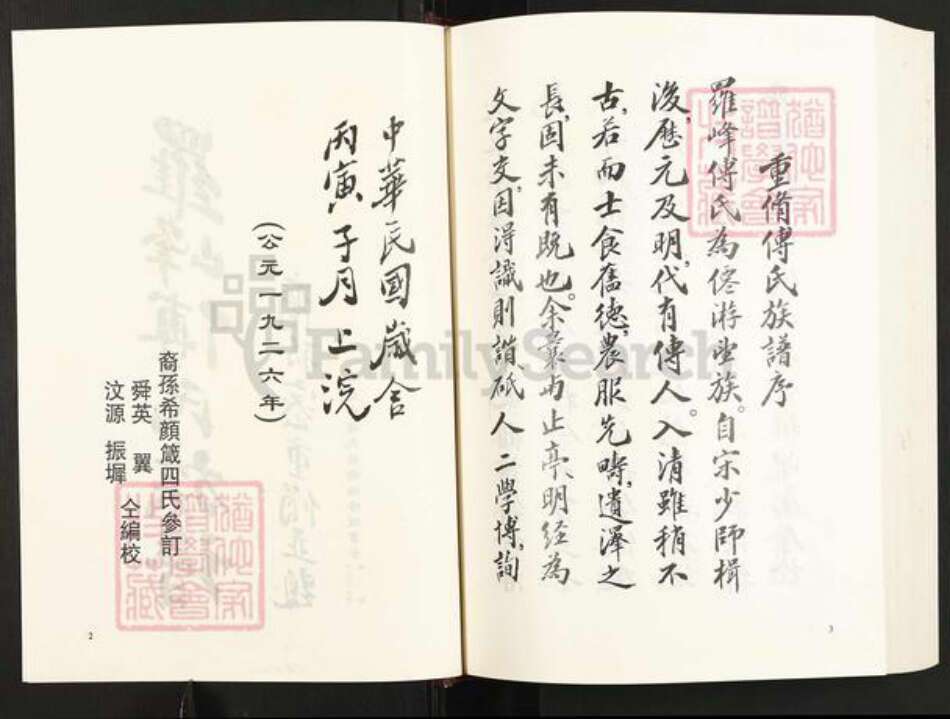 重脩傅氏族譜序
羅峰傅氏為僊游望族。自宋少師楫
後,歷元及明,代有傳人。入清雖稍不
古,若而士食舊德,農服先疇,遺澤之
長,固未有既也。余曩与止亭、明經為
文字交,因得識則諧、砥人二學博,詢
3
中華民國歲合
丙寅子月上浣
(公元一九二六年)
裔孫希顏箴四氏參訂
舜英 翼
汶源 振墀 仝編校
2
FamilySearch